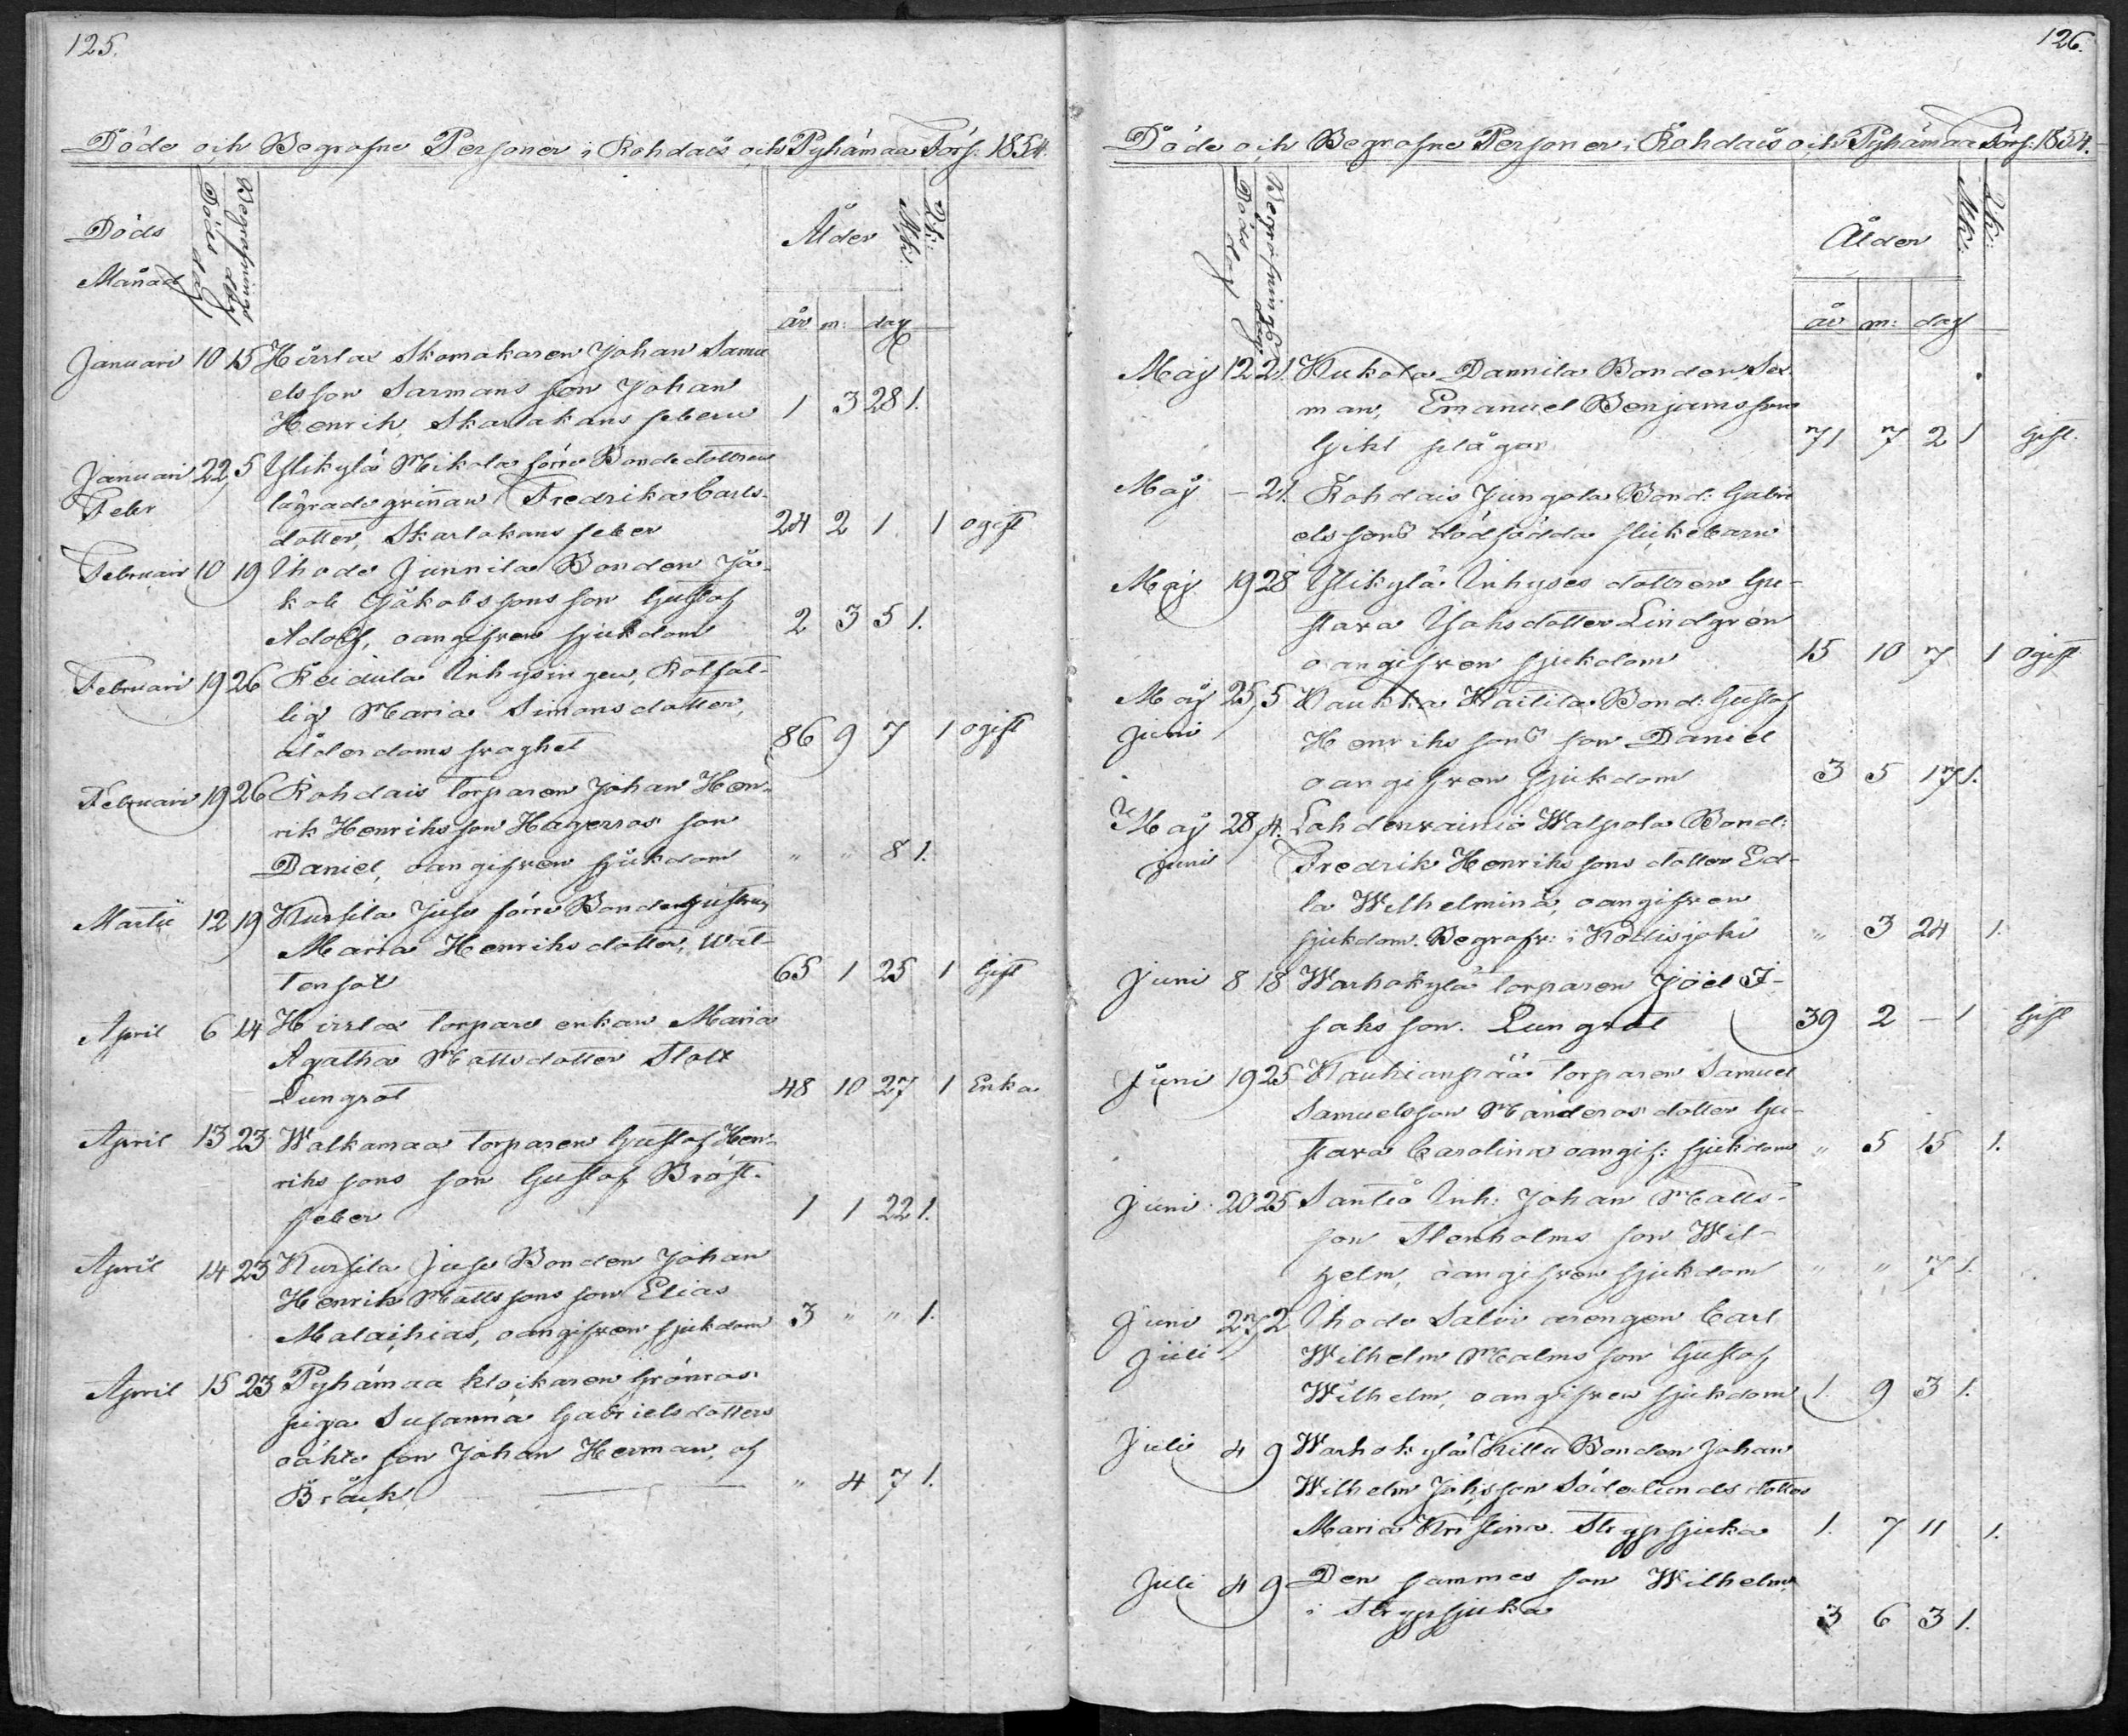 125.
Döde och Begrafne Personer i Rohdais och Pyhämaa Förs: 1854.
Döds Månad
Döds dag
Begrafnings dag
Ålder
Mk:
Qk:
år m: dag
Januari 10 15 Hirslax Skomakaren Johan Samu
elsson Sarmans son Johan
Henrik, Skarlakans feber 1 3 28 1.
Januari 22 5 Ylikylä Mikola förre Bondedottren
Febr lägradegvinnan Fredrika Carls-
dotter, Skarlakans feber 24 2 1 1 ogift
Februari 10 19 Ihode Junnila Bonden Ja-
kob Jakobssons son Gustaf
Adolf, oangifven sjukdom 2 3 5 1.
Februari 19 26 Reidula Inhysingen, Rotfat-
tig Maria Simonsdotter,
ålderdoms svaghet 86 9 7 1 ogift
Februari 19 26 Rohdais torparen Johan Hen-
rik Henriksson Hagerros son
Daniel, oangifven sjukdom " " 8 1.
Martii 12 19 Kursila Juse förre Bonde hustrun
Maria Henriksdotter, Wat-
tensot 65 1 25 1 Gift
April 6 14 Hirslax torpare enkan Maria
Agatha Mattsdotter Stolt
Lungsot 48 10 27 1 Enka
April 13 23 Walkamaa torparen Gustaf Hen-
rikssons son Gustaf Bröst-
feber 1 1 22 1.
April 14 23 Kursila Juse Bonden Johan
Henrik Mattssons son Elias
Malachias, oangifven sjukdom 3 " " 1.
April 15 23 Pyhämaa klockaren Grönroos
piga Susanna Gabrielsdotters
oäkta son Johan Herman, af
Bråck " 4 7 1.
126.
Döde och Begrafne Personer i Rohdais och Pyhämaa Förs: 1854.
Döds dag
Begrafnings dag
Ålder
Mk:
Qk:
år m: dag
Maj 12 21. Kukola Dannila Bonden, Sex
man, Emanuel Benjamsson
Gikt plågor 71 7 2 1 Gift.
Maj – 21. Rohdais Jungola Bond: Gabri
elssons dödfödda flickebarn
Maj 19 28 Ylikylä Inhyses dottren Gu-
stava Isaksdotter Lindgrén
oangifven sjukdom 15 10 7 1 Ogift
Maj 25 5 Kaukka Klaitila Bond: Gustaf
Juni Henrikssons son Daniel
oangifven sjukdom 3 5 17 1.
Maj 28 4. Lahdenvainio Walpola Bond:
Juni Fredrik Henrikssons dotter Ed-
la Wilhelmina, oangifven
sjukdom. Begrafv: i Kodisjoki " 3 24 1.
Juni 8 18 Warhokylä torparen Joël I-
saksson. Lungsot 39 2 – 1 Gift
Juni 19 25 Kauhianpää torparen Samuel
Samuelsson Manderos dotter Gu-
stava Carolina oangif: sjukdom " 5 15 1.
Juni 20 25 Santio Inh: Johan Matts-
son Stenholms son Wil-
helm, oangifven sjukdom " " 7 1.
Juni 27 2 Ihode Salvi drengen Carl
Juli Wilhelm Malms son Gustaf
Wilhelm, oangifven sjukdom 1. 9 3 1.
Juli 4 9 Warhokylä Killu Bonden Johan
Wilhelm Johsson Söderlunds dotter
Maria Kristina. Strypsjuka 1. 7 11 1.
Juli 4 9 Den sammes son Wilhelm
i Strypsjuka 3 6 3 1.